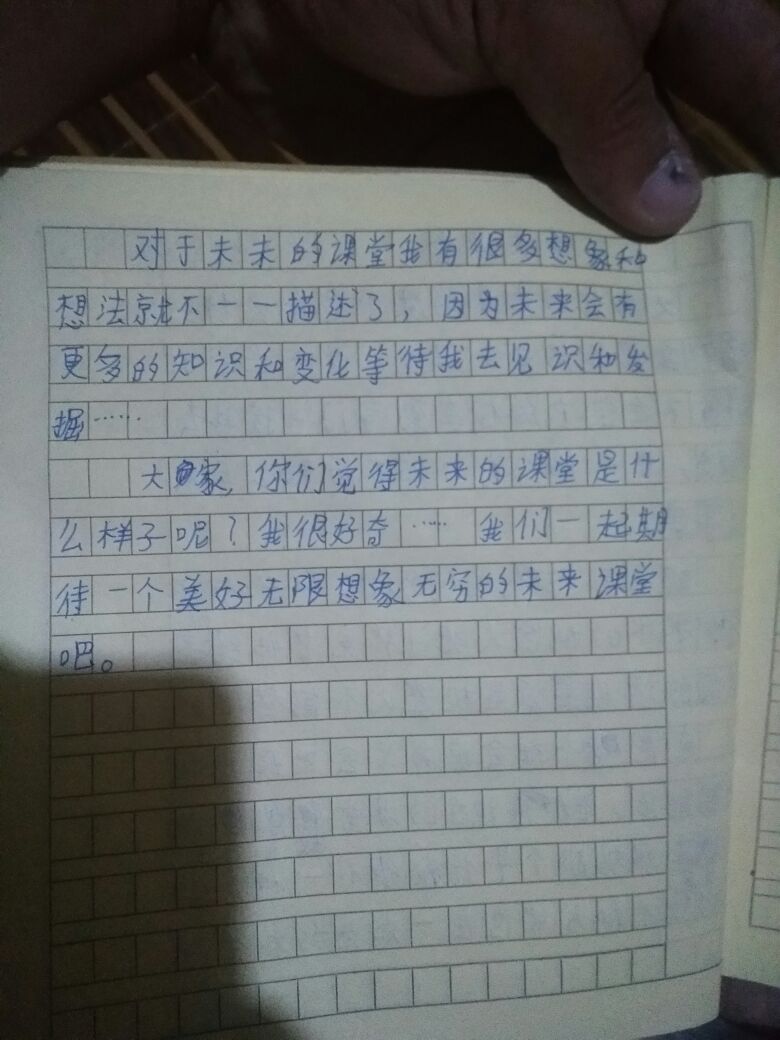 对于未未的课堂我有很多想象和
想法就不一一描述了，因为未来会有
更多的知识和变化等待我去见识和发
掘……
大家，你们觉得未来的课堂是什
么样子呢？我很好奇……我们一起期
待一个美好无限想象无穷的未来课堂
吧。